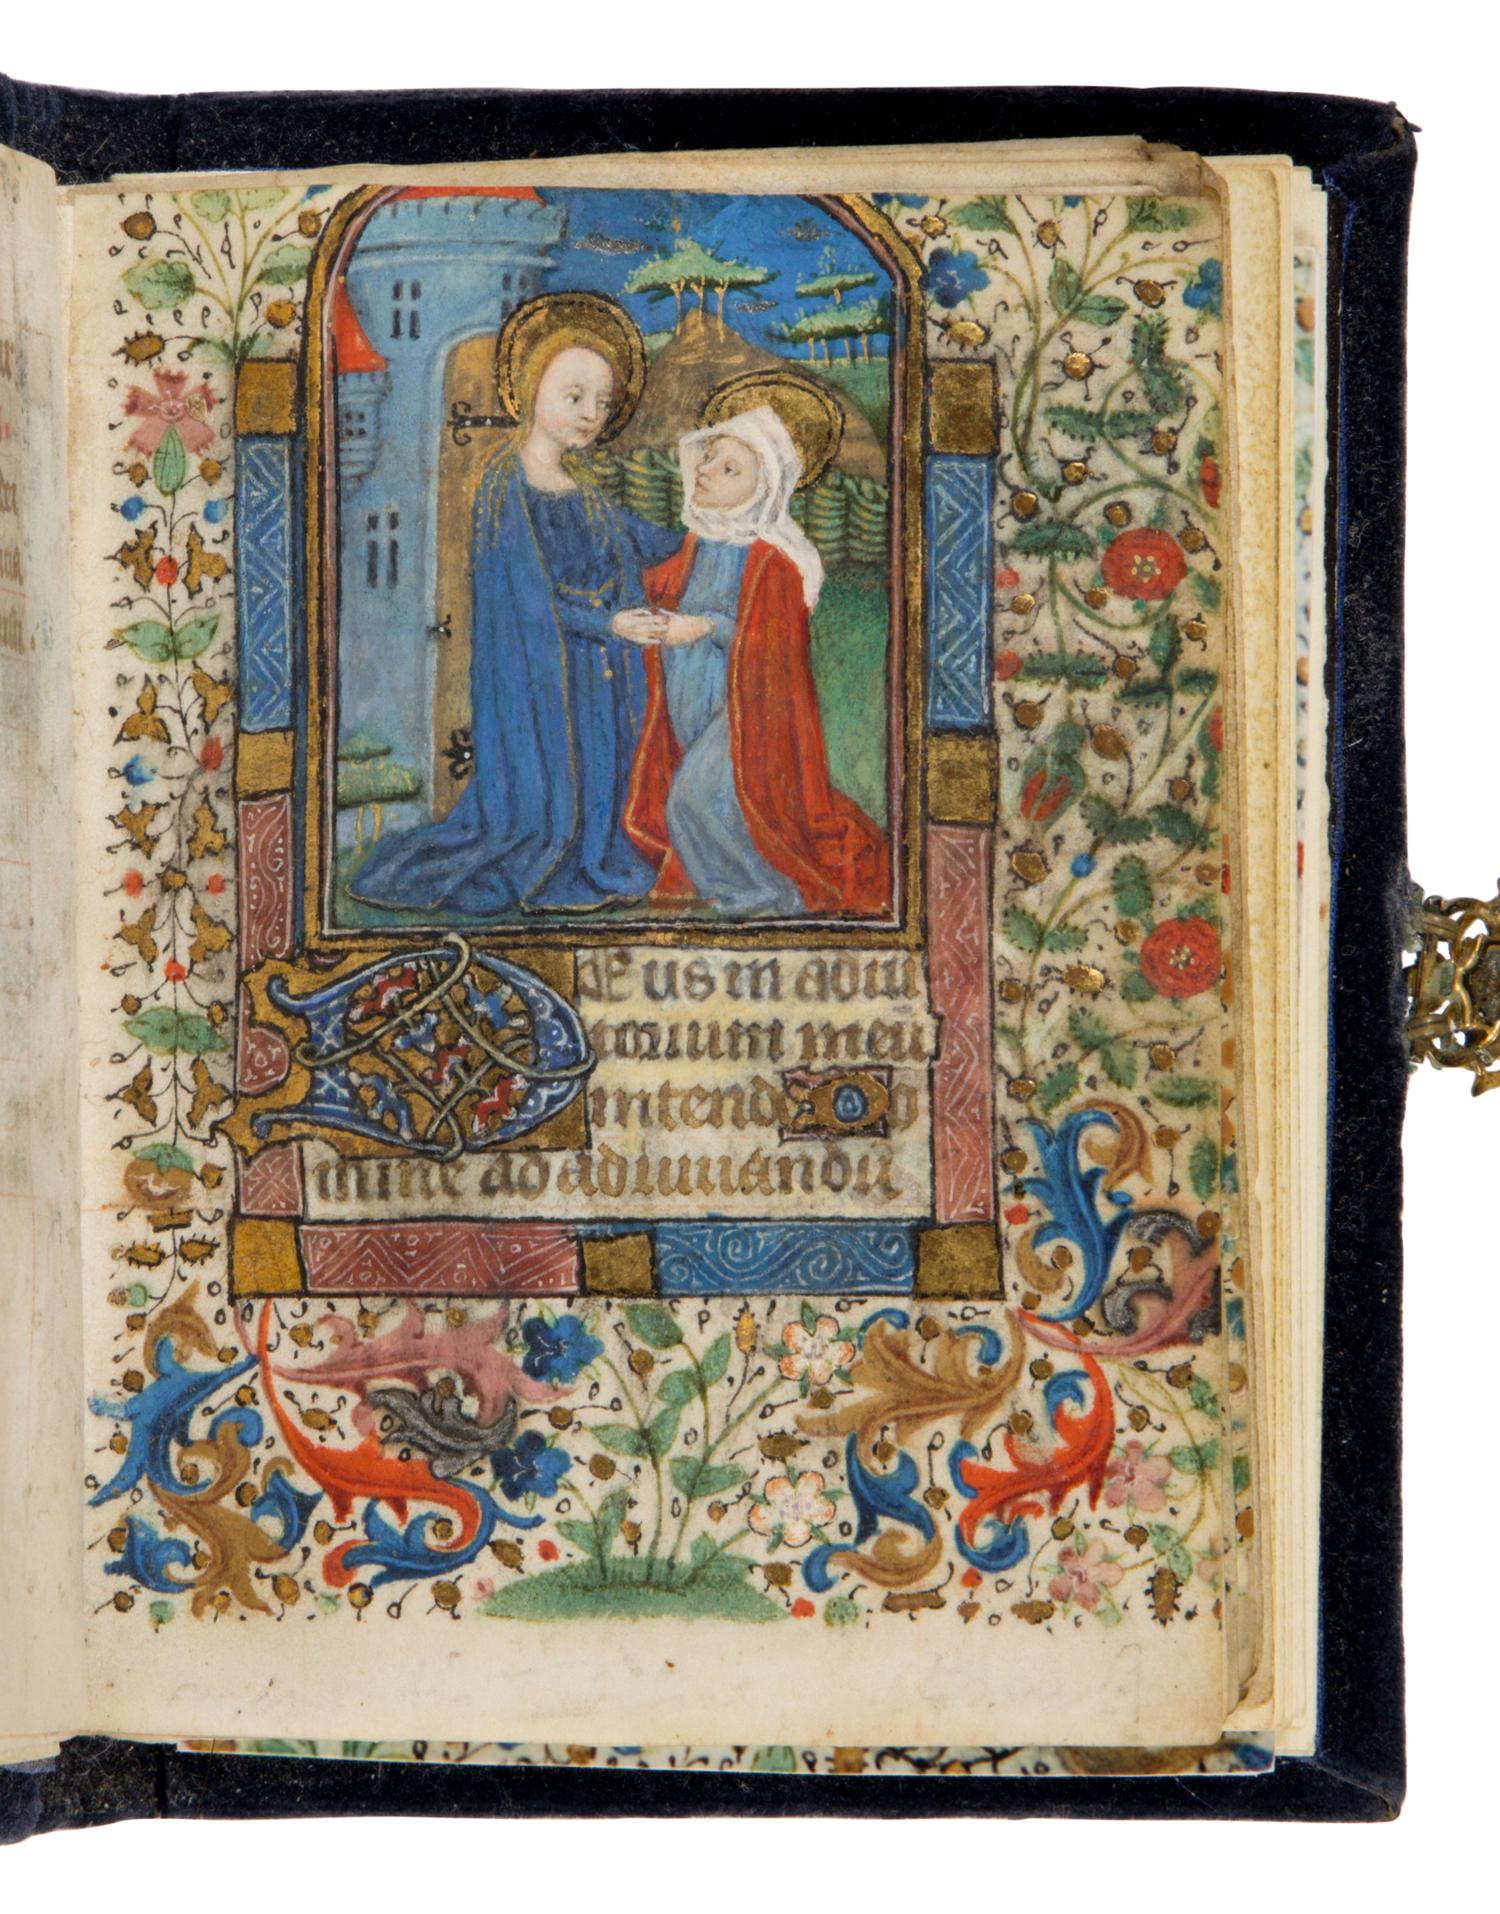 Deus in adiu
torium meū
intende Do
mine ad adiuuandū